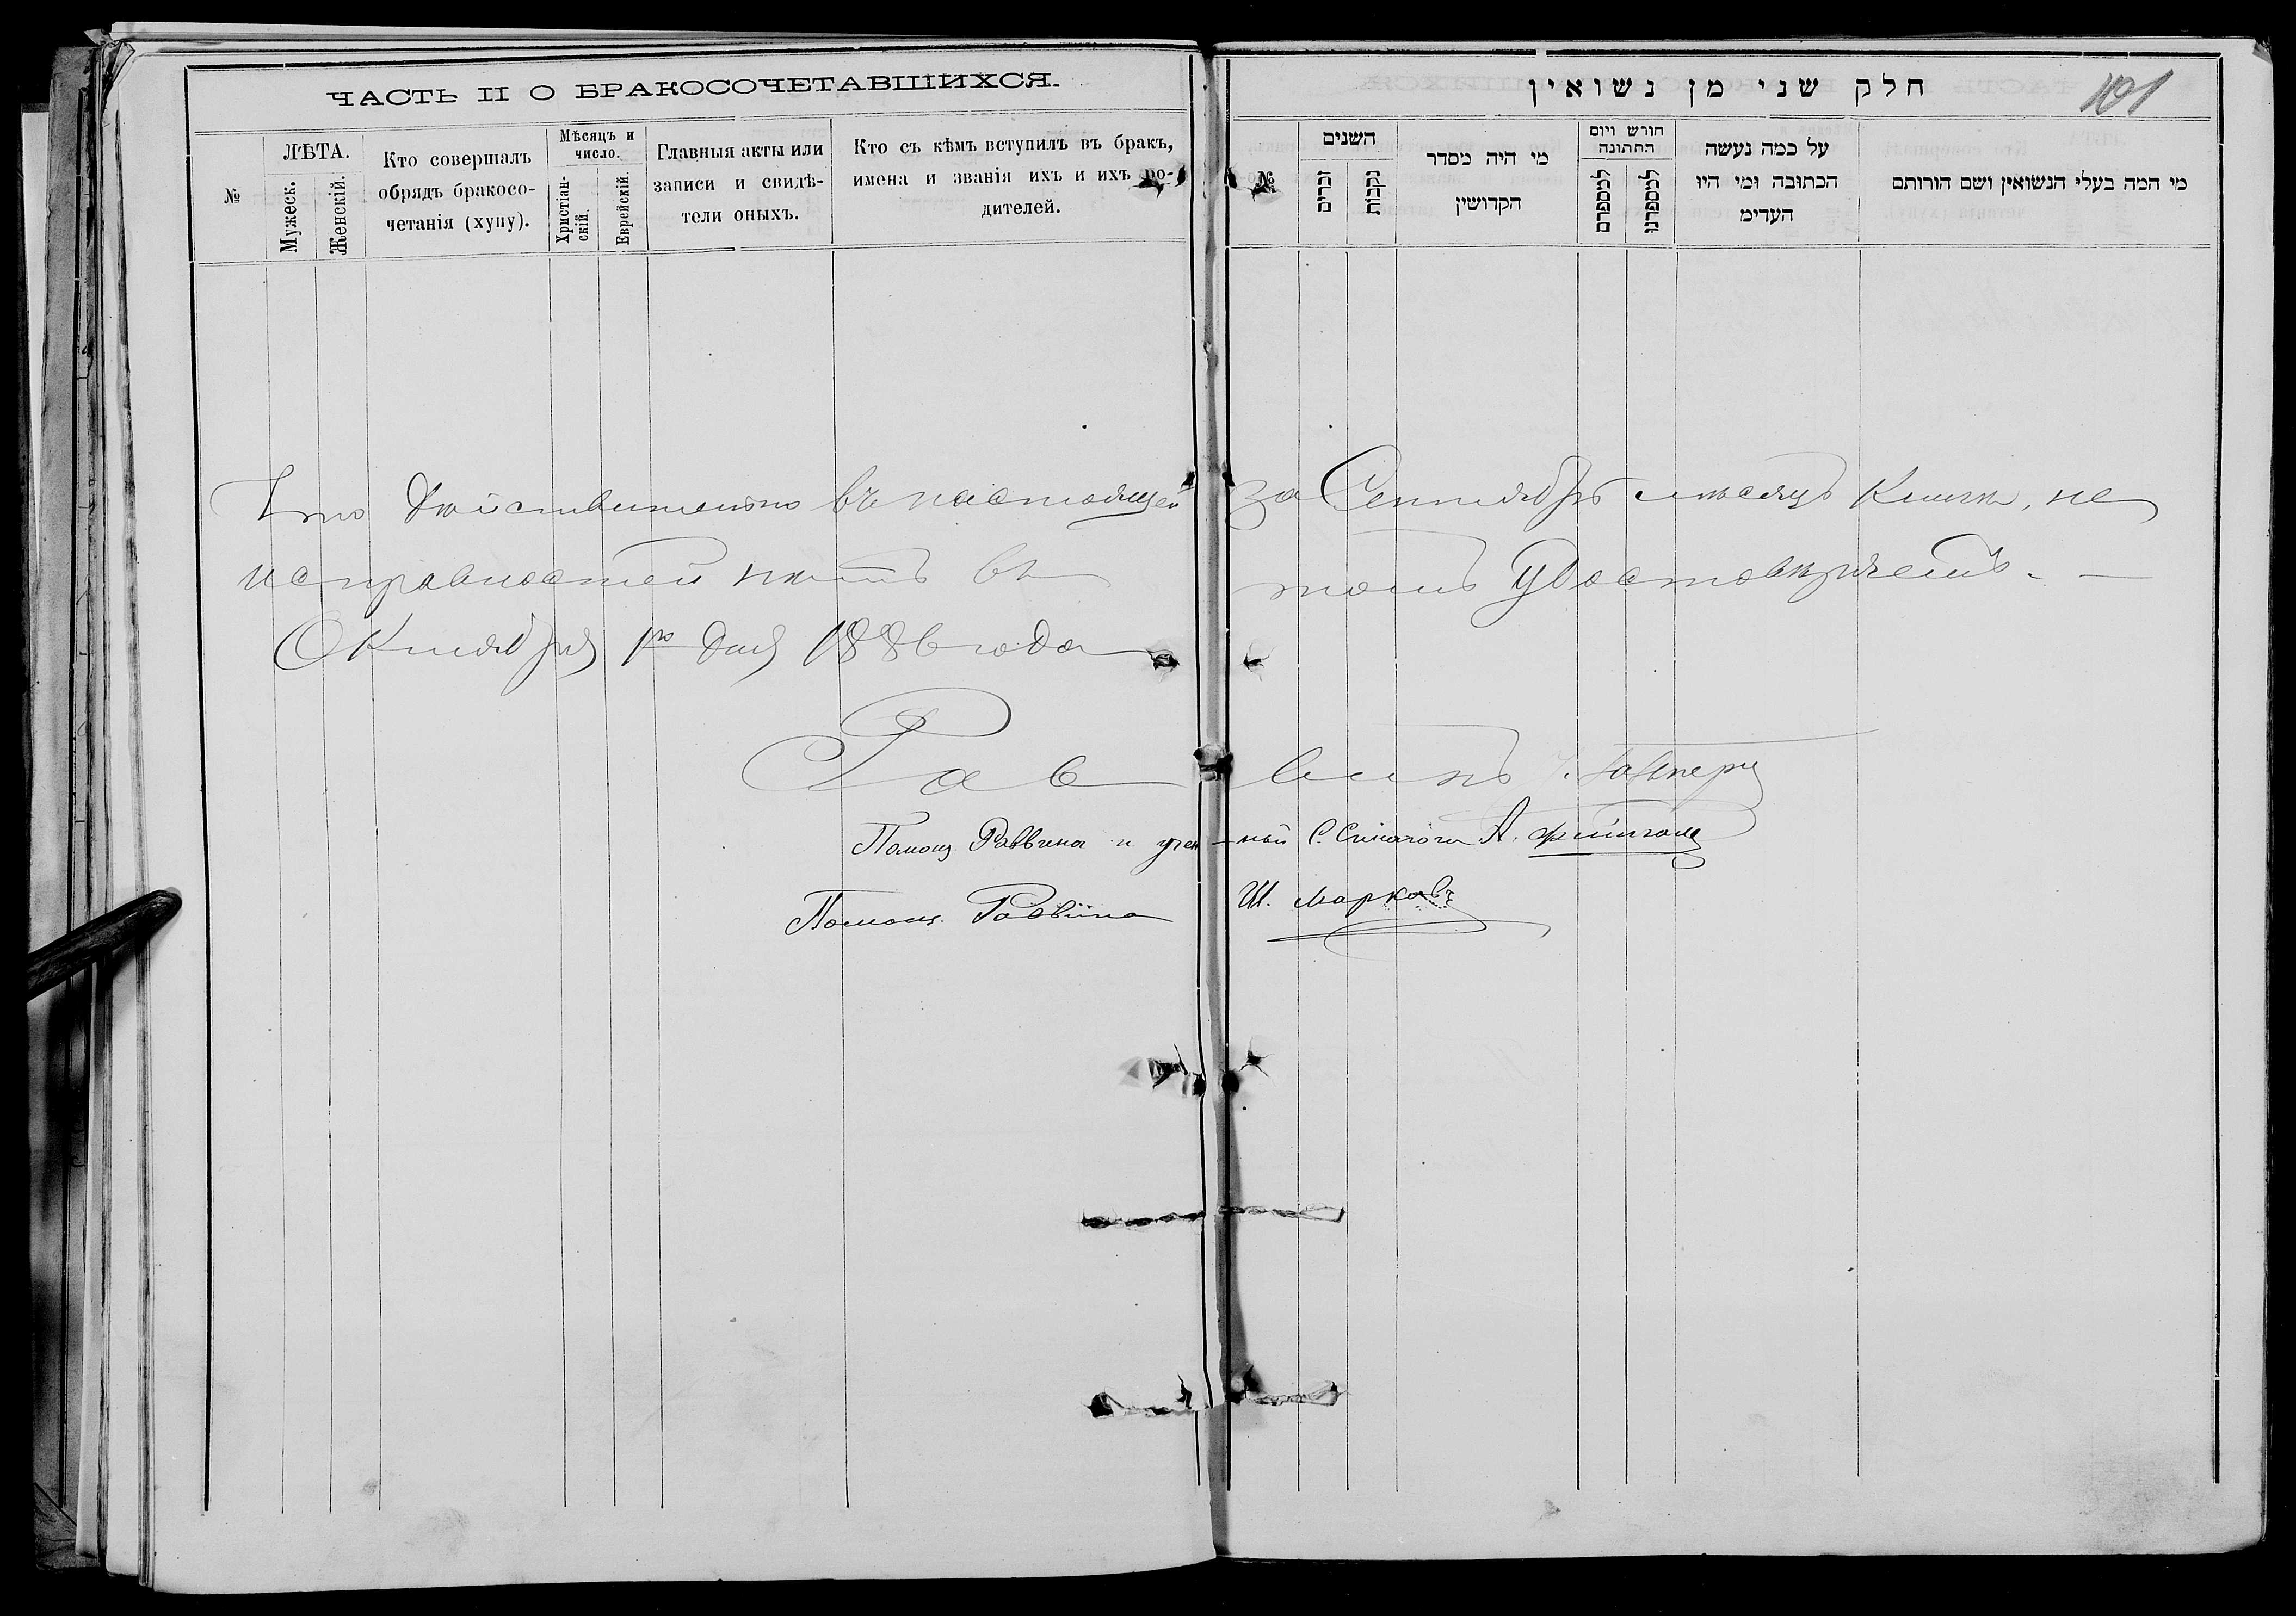 ЧАСТЬ II О БРАКОСОЧЕТАВШИХСЯ.
№
ЛѢТА.
Мужеск.
Женскій.
Кто совершалъ
обрядъ бракосо-
четанія (хупу).
Мѣсяцъ и
число.
Христіан-
скій.
Еврейскій.
Главныя акты или
записи и свидѣ-
тели оныхъ.
Кто съ кѣмъ вступилъ въ бракъ,
имена и званія ихъ и ихъ ро-
дителей.
חלק שני מן נשואין
101
№
השנים
זכרים
נקבות
מי היה מסדר
הקדושין
חורש ויום
החתונה
למספרם
למספרנו
על כמה נעשה
הכתובה ומי היו
העדים
מי המה בעלי הנשואין ושם הורותם
Что дѣйствительно въ настоящей за Сентябрь мѣсяцъ Книги, не
исправностей нѣтъ въ томъ удостовѣряемъ. —
Октября 1го дня 1886 года
Раввинъ
Помощ Раввина и учен-ный С. Синагоги А.
Помощ. Раввина Ш. Марковъ